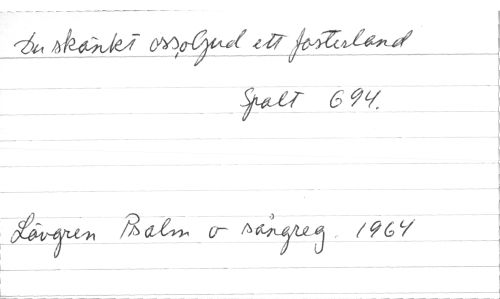 Du skänkt oss, o Gud ett fosterland
Spalt 694.
Lövgren Psalm o sångreg. 1964